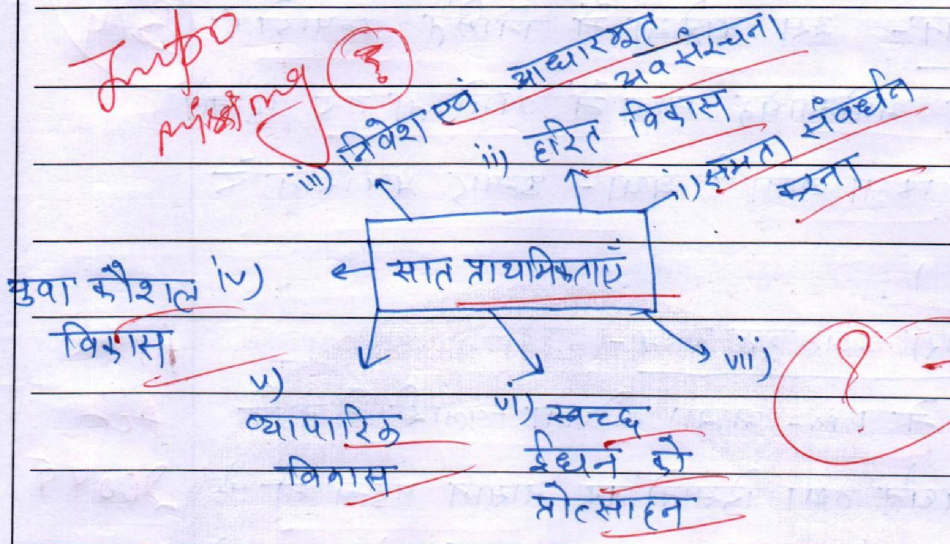 iii) निवेश एवं आधारभूत
अवसंरचना
ii) हरित विकास
i) क्षमता संवर्धन
करना
सात प्राथमिकताएँ
युवा कौशल iv)
विकास
v)
व्यापारिक
विकास
vi) स्वच्छ
ईंधन को
प्रोत्साहन
vii)
?